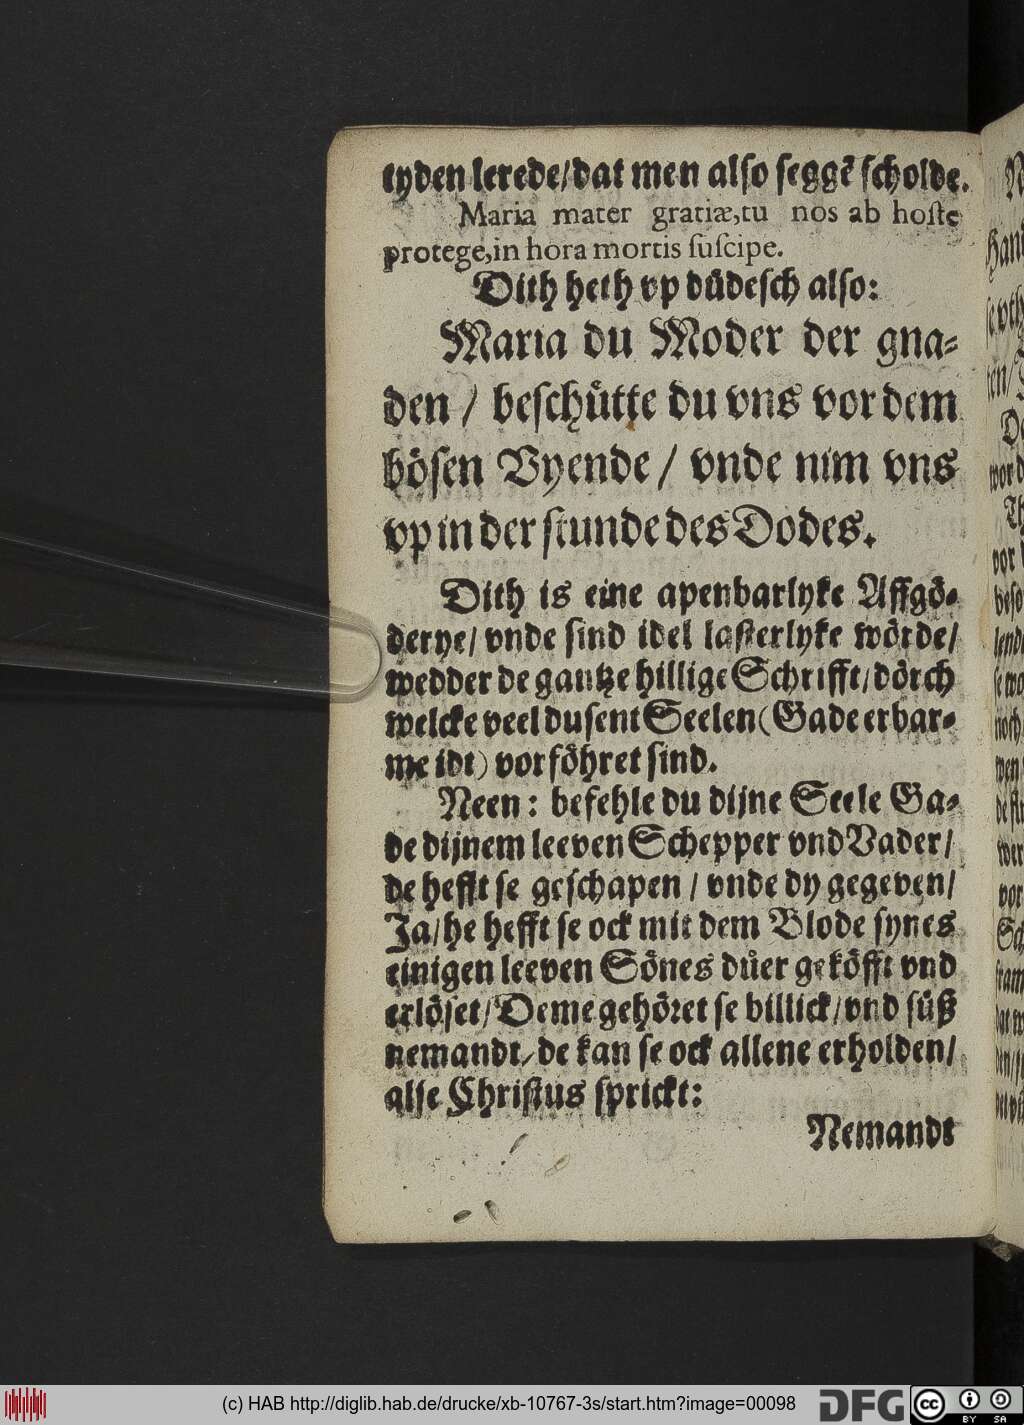 tyden lerede/dat men also seggē scholde.
Maria mater gratiæ,tu nos ab hoſte
protege,in hora mortis ſuſcipe.
Dith heth vp düdeſch alſo:
Maria du Moder der gna-
den / beſchütte du vns vor dem
böſen Vyende / vnde nim vns
vp in der ſtunde des Dodes.
Dith is eine apenbarlyke Affgö-
derye/ vnde ſind idel laſterlyke wörde/
wedder de gantze hillige Schrifft/dörch
welcke veel duſent Seelen (Gade erbar-
me idt) vorföhret ſind.
Neen: befehle du dijne Seele Ga-
de dijnem leeven Schepper vnd Vader/
de hefft ſe geſchapen / vnde dy gegeven/
Ja/he hefft ſe ock mit dem Blode ſynes
einigen leeven Sönes düer geköfft vnd
erlöſet/Deme gehöret ſe billick/vnd ſüß
nemandt/de kan ſe ock allene erholden/
alſe Chriſtus ſprickt:
Nemandt
(c) HAB http://diglib.hab.de/drucke/xb-10767-3s/start.htm?image=00098
DFG
cc BY SA